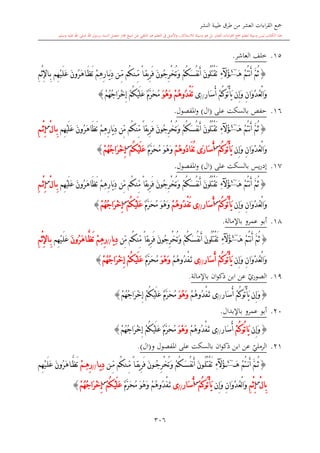 جمع القراءات العشر من طرق طيبة النشر
١٥. خلف العاشر.
﴿ ثُمَّ أَنتُمْ هَـٰٓؤُلَآءِ تَقْتُلُونَ أَنفُسَكُمْ وَتُخْرِجُونَ فَرِيقاً مِّنكُم مِّن دِيَارِهِمْ تَظَاهَرُونَ عَلَيْهِم بِالْإِثْمِ
وَالْعُدْوَانِ وَإِن يَأْتُوكُمْ أُسَارَرى تَفْدُوهُمْ وَهُوَ مُحَرَّمٌ عَلَيْكُمْ إِخْرَاجُهُمْ ﴾
١٦. حفص بالسكت على (ال) والمفصول.
﴿ ثُمَّ أَنتُمْ هَـٰٓؤُلَآءِ تَقْتُلُونَ أَنفُسَكُمْ وَتُخْرِجُونَ فَرِيقاً مِّنكُم مِّن دِيَارِهِمْ تَظَاهَرُونَ عَلَيْهِم بِالْإِثْمِ
وَالْعُدْوَانِ وَإِن يَأْتُوكُمْ أُسَارَى تُفَادُوهُمْ وَهُوَ مُحَرَّمٌ عَلَيْكُمْ إِخْرَاجُهُمْ ﴾
١٧. إدريس بالسكت على (ال) والمفصول.
﴿ ثُمَّ أَنتُمْ هَـٰٓؤُلَآءِ تَقْتُلُونَ أَنفُسَكُمْ وَتُخْرِجُونَ فَرِيقاً مِّنكُم مِّن دِيَارِهِمْ تَظَاهَرُونَ عَلَيْهِم بِالْإِثْمِ
وَالْعُدْوَانِ وَإِن يَأْتُوكُمْ أُسَارَرى تَفْدُوهُمْ وَهُوَ مُحَرَّمٌ عَلَيْكُمْ إِخْرَاجُهُمْ ﴾
١٨. أبو عمرو بالإمالة.
﴿ ثُمَّ أَنتُمْ هَـٰٓؤُلَآءِ تَقْتُلُونَ أَنفُسَكُمْ وَتُخْرِجُونَ فَرِيقاً مِّنكُم مِّن دِيَارِرهِمْ تَظَّاهَرُونَ عَلَيْهِم بِالْإِثْمِ
وَالْعُدْوَانِ وَإِن يَأْتُوكُمْ أُسَارَرى تَفْدُوهُمْ وَهْوَ مُحَرَّمٌ عَلَيْكُمْ إِخْرَاجُهُمْ ﴾
١٩. الصوريّ عن ابن ذكوان بالإمالة.
﴿ وَإِن يَأْتُوكُمْ أُسَارَرى تَفْدُوهُمْ وَهُوَ مُحَرَّمٌ عَلَيْكُمْ إِخْرَاجُهُمْ ﴾
٢٠. أبو عمرو بالإبدال.
﴿ وَإِن يَاتُوكُمْ أُسَارَرى تَفْدُوهُمْ وَهْوَ مُحَرَّمٌ عَلَيْكُمْ إِخْرَاجُهُمْ ﴾
٢١. الرمليّ عن ابن ذكوان بالسكت على المفصول و(ال).
﴿ ثُمَّ أَنتُمْ هَـٰٓؤُلَآءِ تَقْتُلُونَ أَنفُسَكُمْ وَتُخْرِجُونَ فَرِيقاً مِّنكُم مِّن دِيَارِرهِمْ تَظَّاهَرُونَ عَلَيْهِم
بِالْإِثْمِ وَالْعُدْوَانِ وَإِن يَأْتُوكُمْ أُسَارَرى تَفْدُوهُمْ وَهُوَ مُحَرَّمٌ عَلَيْكُمْ إِخْرَاجُهُمْ ﴾
٣٠٦